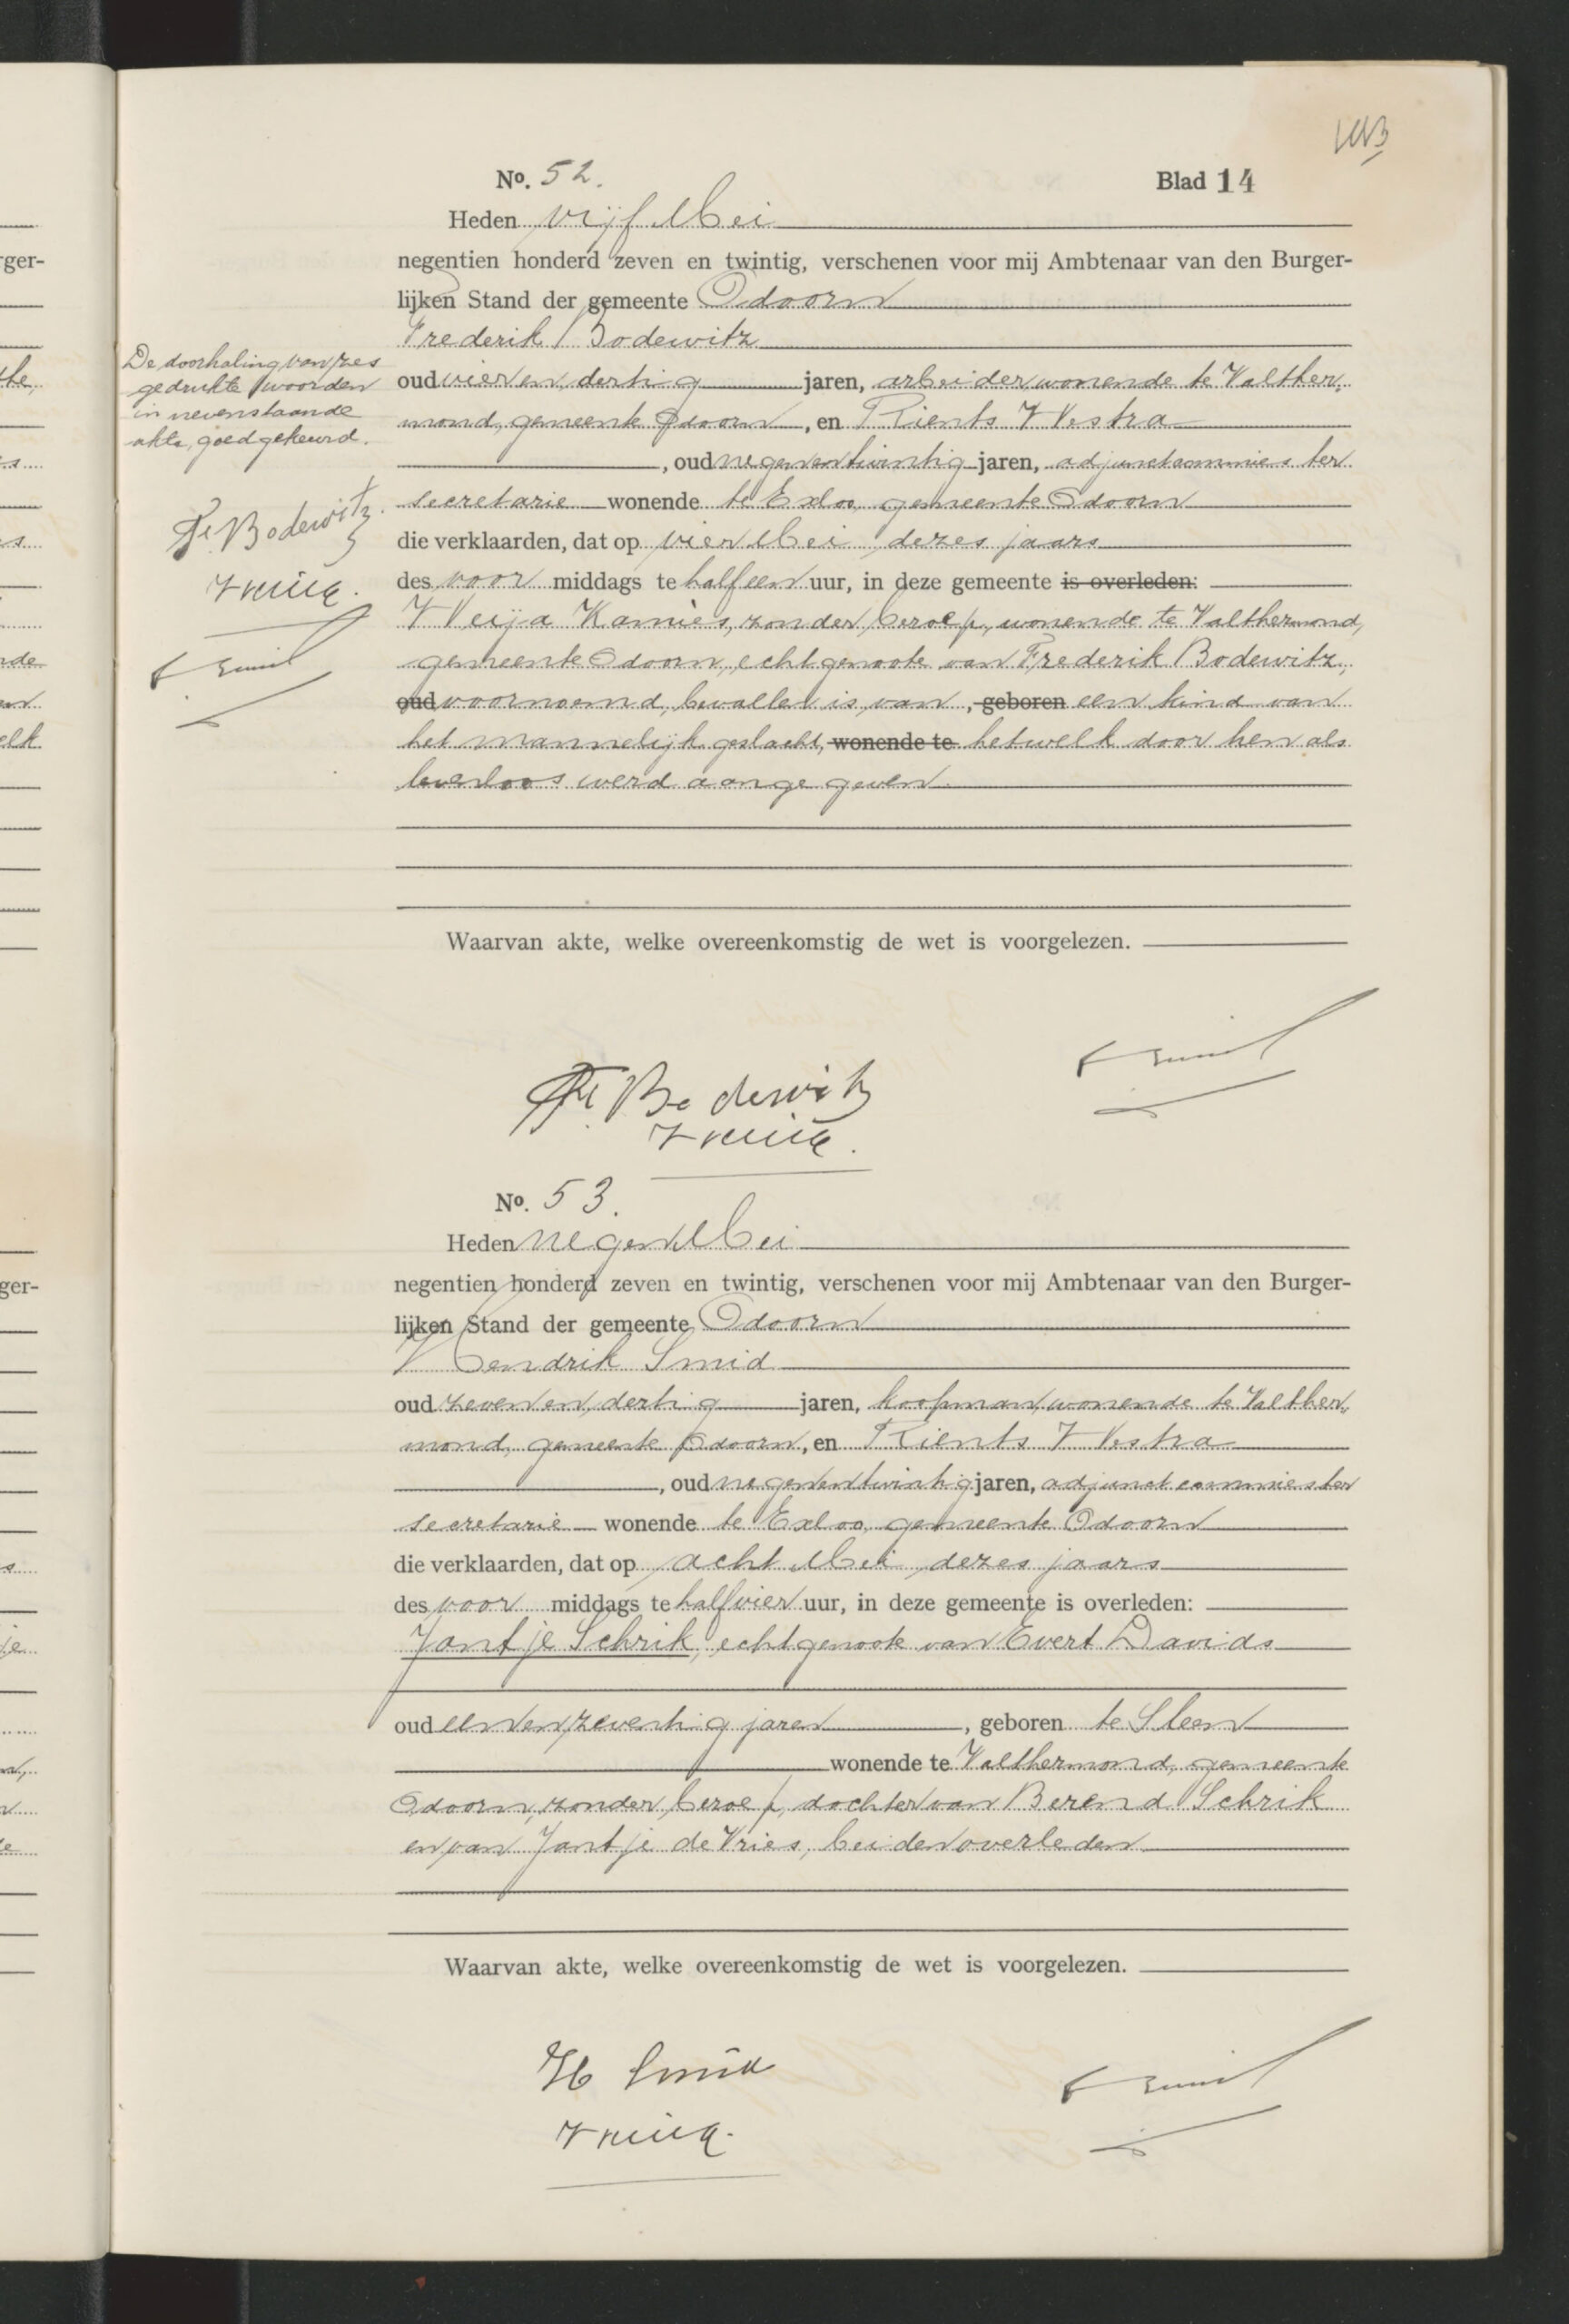 No. 52.
Blad 14
Heden vijf Mei
negentien honderd zeven en twintig, verschenen voor mij Ambtenaar van den Burger-
lijken Stand der gemeente Odoorn
Frederik Bodewitz
oud vier en dertig jaren, arbeider wonende te Valther-
mond, gemeente Odoorn, en Rients Westra
, oud negenentwintig jaren, adjunctcommies ter
secretarie wonende te Exloo, gemeente Odoorn
die verklaarden, dat op vier Mei dezes jaars
des voor middags te half een uur, in deze gemeente is overleden:
Weija Kamies, zonder beroep, wonende te Valthermond,
gemeente Odoorn, echtgenoote van Frederik Bodewitz,
oud voornoemd, bevallen is van, geboren een kind van
het mannelijk geslacht, wonende te hetwelk door hen als
levenloos werd aangegeven.
De doorhaling van zes
gedrukte woorden
in nevenstaande
akte, goedgekeurd.
Fr. Bodewitz.
Waarvan akte, welke overeenkomstig de wet is voorgelezen.
Fr. Bodewitz
No. 53.
Heden negen Mei
negentien honderd zeven en twintig, verschenen voor mij Ambtenaar van den Burger-
lijken Stand der gemeente Odoorn
Hendrik Smid
oud zeven en dertig jaren, koopman, wonende te Valther-
mond, gemeente Odoorn, en Rients Westra
, oud negenentwintig jaren, adjunct commies ter
secretarie wonende te Exloo, gemeente Odoorn
die verklaarden, dat op acht Mei dezes jaars
des voor middags te half vier uur, in deze gemeente is overleden:
Jantje Schrik, echtgenoote van Evert Davids
oud eenenzeventig jaren, geboren te Sleen
wonende te Valthermond, gemeente
Odoorn, zonder beroep, dochter van Berend Schrik
en van Jantje de Vries, beiden overleden
Waarvan akte, welke overeenkomstig de wet is voorgelezen.
H Smid